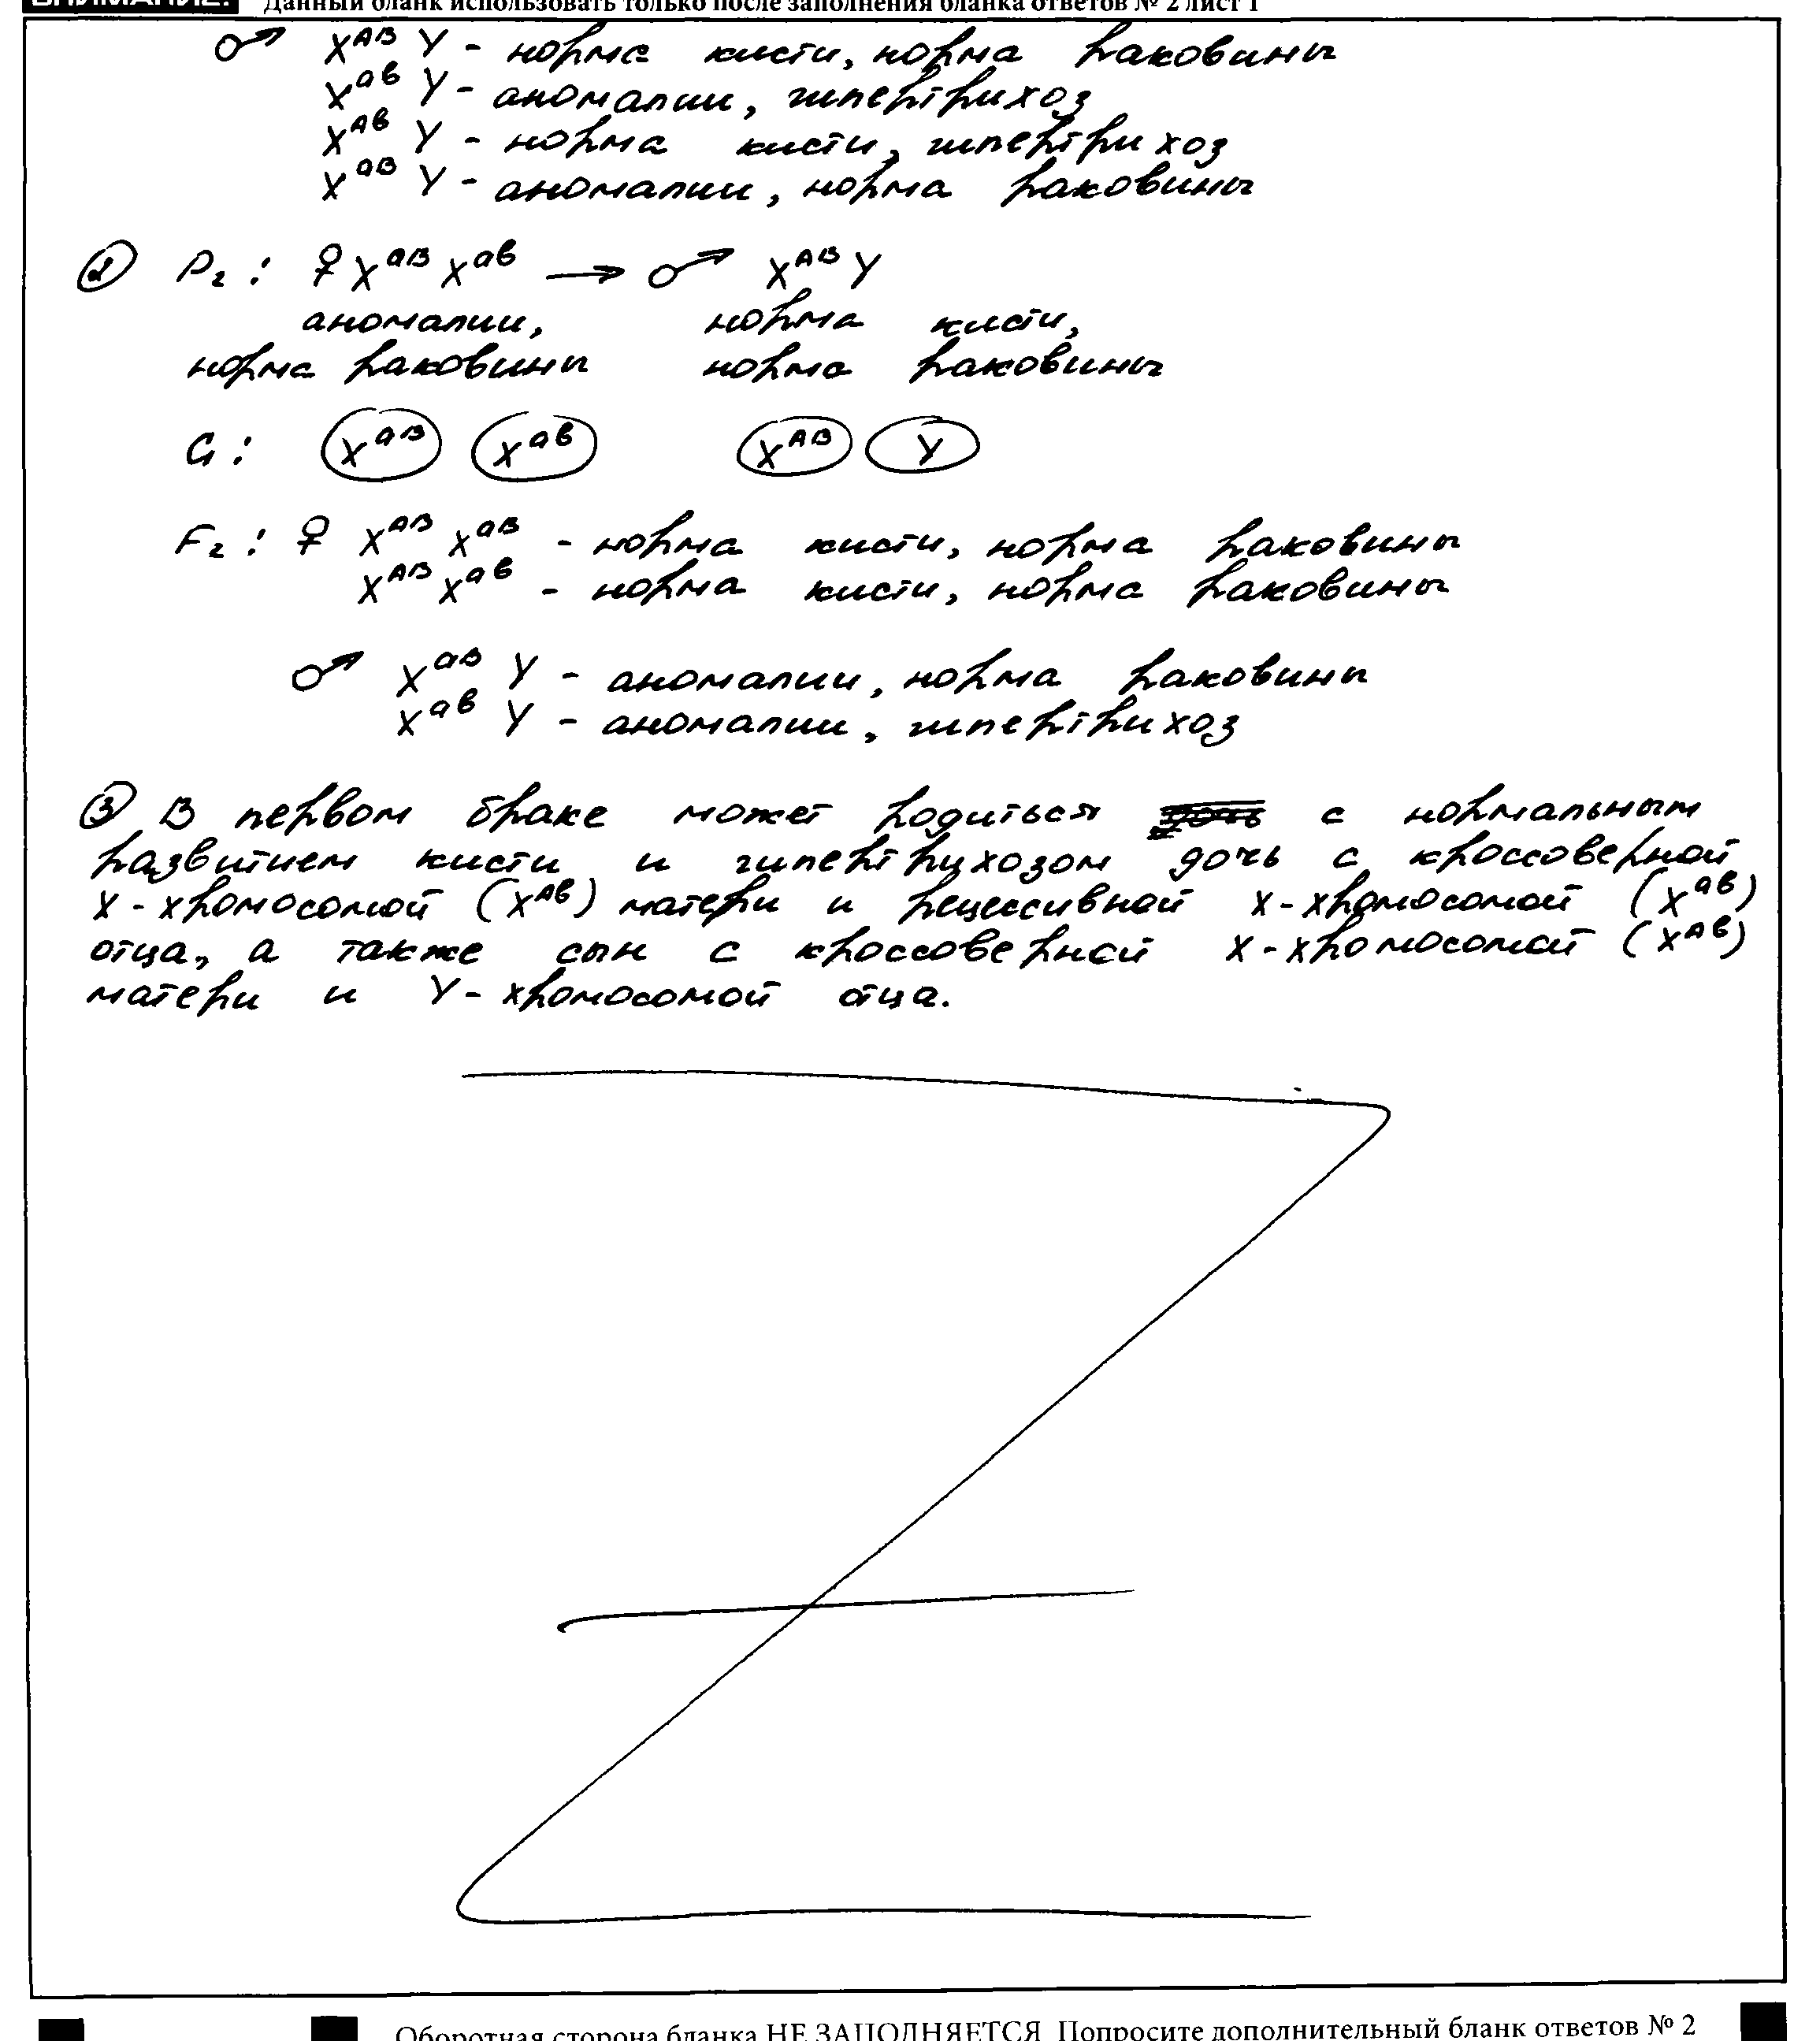 Данный бланк использовать только после заполнения бланка ответов № 2 лист 1
♂ X^AB Y - норма кисти, норма раковины
X^ab Y - аномалии, гипертрихоз
X^Ab Y - норма кисти, гипертрихоз
X^aB Y - аномалии, норма раковины
② P₂: ♀ X^aB X^ab → ♂ X^AB Y
аномалии, норма кисти,
норма раковины норма раковины
G: X^aB X^ab X^AB Y
F₂: ♀ X^AB X^aB - норма кисти, норма раковины
X^AB X^ab - норма кисти, норма раковины
♂ X^aB Y - аномалии, норма раковины
X^ab Y - аномалии, гипертрихоз
③ В первом браке может родиться с нормальным
развитием кисти и гипертрихозом дочь с кроссоверной
X-хромосомой (X^Ab) матери и рецессивной X-хромосомой (X^ab)
отца, а также сын с кроссоверной X-хромосомой (X^Ab)
матери и Y-хромосомой отца.
Оборотная сторона бланка НЕ ЗАПОЛНЯЕТСЯ. Попросите дополнительный бланк ответов № 2